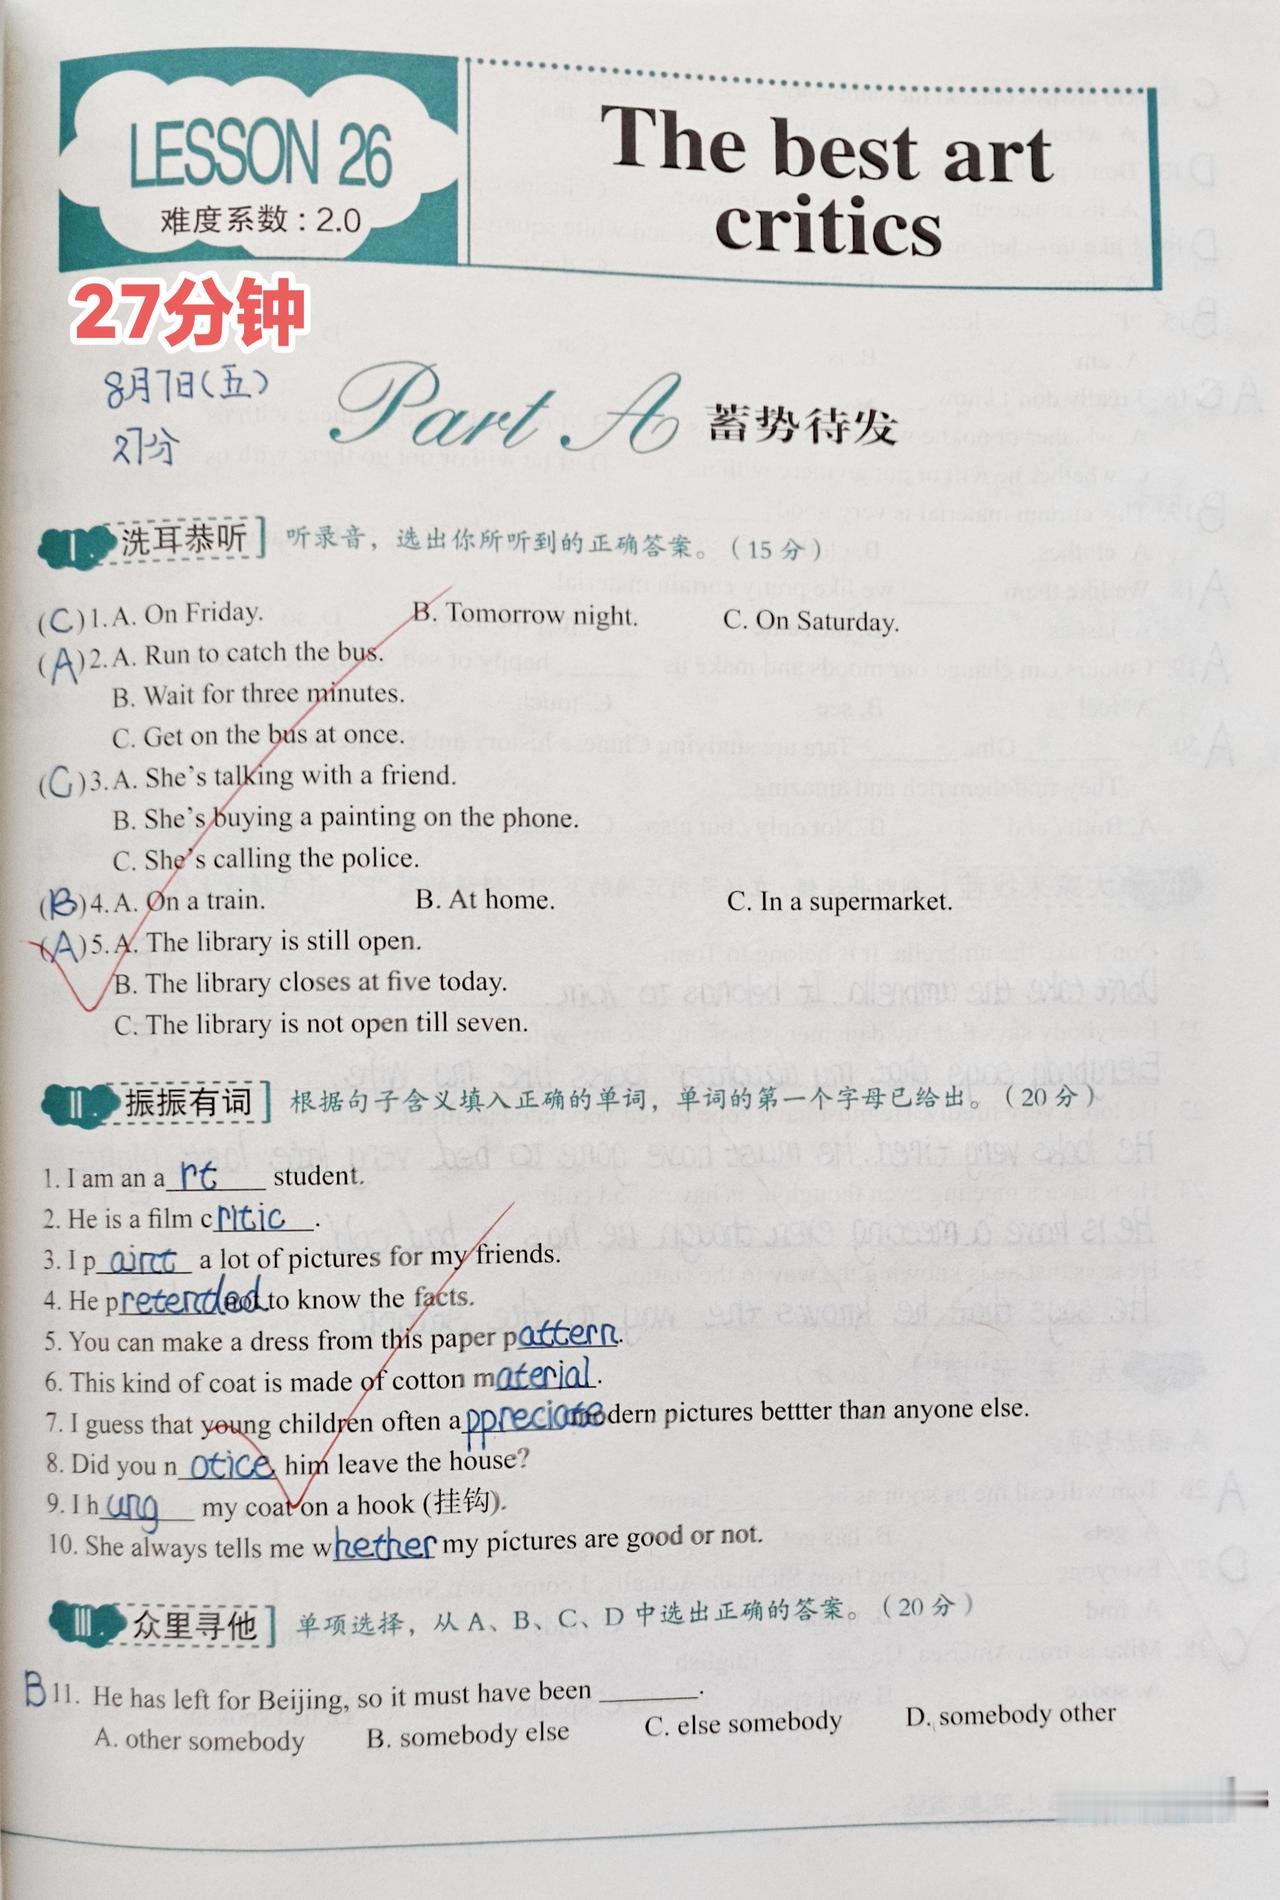 LESSON 26
难度系数：2.0
The best art
critics
27分钟
8月7日(五)
27分
Part A 蓄势待发
Ⅰ 洗耳恭听 听录音，选出你所听到的正确答案。（15分）
(C)1. A. On Friday. B. Tomorrow night. C. On Saturday.
(A)2. A. Run to catch the bus.
B. Wait for three minutes.
C. Get on the bus at once.
(C)3. A. She's talking with a friend.
B. She's buying a painting on the phone.
C. She's calling the police.
(B)4. A. On a train. B. At home. C. In a supermarket.
(A)5. A. The library is still open.
B. The library closes at five today.
C. The library is not open till seven.
Ⅱ 振振有词 根据句子含义填入正确的单词，单词的第一个字母已给出。（20分）
1. I am an art student.
2. He is a film critic.
3. I paint a lot of pictures for my friends.
4. He pretended not to know the facts.
5. You can make a dress from this paper pattern.
6. This kind of coat is made of cotton material.
7. I guess that young children often appreciate modern pictures bettter than anyone else.
8. Did you notice him leave the house?
9. I hung my coat on a hook (挂钩).
10. She always tells me whether my pictures are good or not.
Ⅲ 众里寻他 单项选择，从A、B、C、D中选出正确的答案。（20分）
B 11. He has left for Beijing, so it must have been ______.
A. other somebody B. somebody else C. else somebody D. somebody other